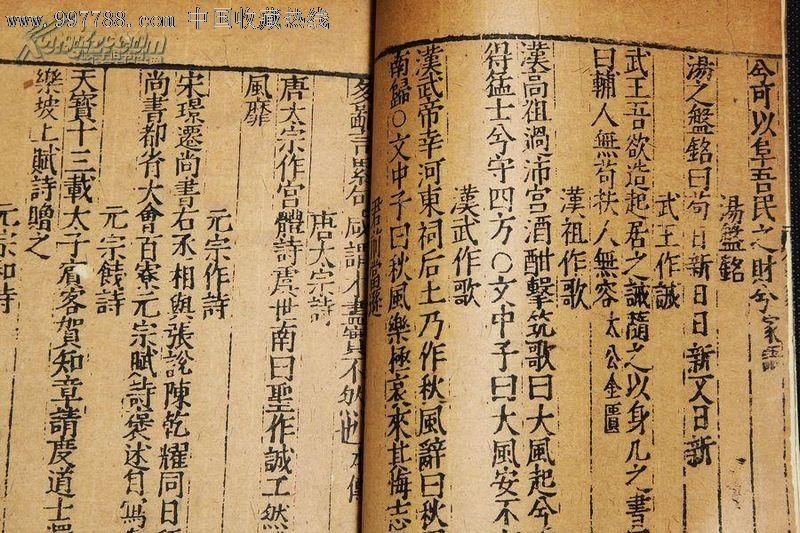 www.997788.com 中国收藏热线
兮可以阜吾民之財兮家語
湯盤銘
湯之盤銘曰苟日新日日新又日新
武王作誡
武王曰吾欲造起居之誡隨之以身几之書
曰輔人無苟扶人無容太公金匱
漢祖作歌
漢高祖過沛宮酒酣擊筑歌曰大風起兮
得猛士兮守四方○文中子曰大風安不
漢武作歌
漢武帝幸河東祠后土乃作秋風辭曰秋
南歸○文中子曰秋風樂極哀來其悔志
唐太宗詩
唐太宗作宮體詩虞世南曰聖作誠工然
風靡
元宗作詩
宋璟遷尚書右丞相與張說陳乾曜同日
尚書都省大會百寮元宗賦詩褒述自寫
元宗餞詩
天寶十三載太子賓客賀知章請度道士
樂坡上賦詩贈之
元宗和詩